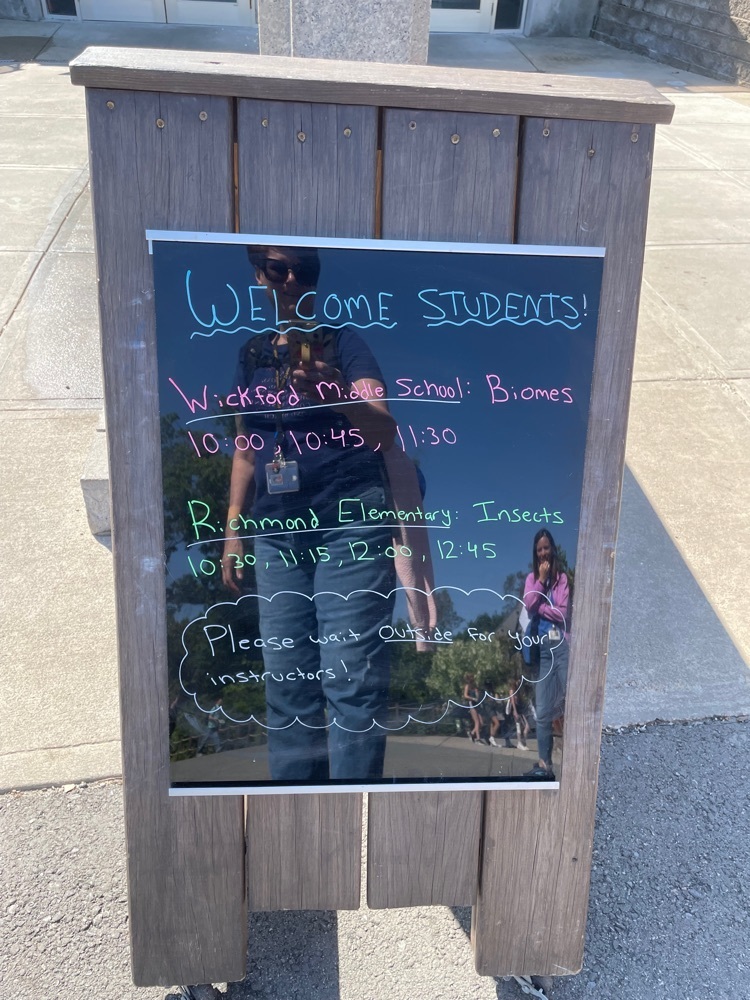 WELCOME STUDENTS!
Wickford Middle School: Biomes
10:00, 10:45, 11:30
Richmond Elementary: Insects
10:30, 11:15, 12:00, 12:45
Please wait outside for your
instructors!